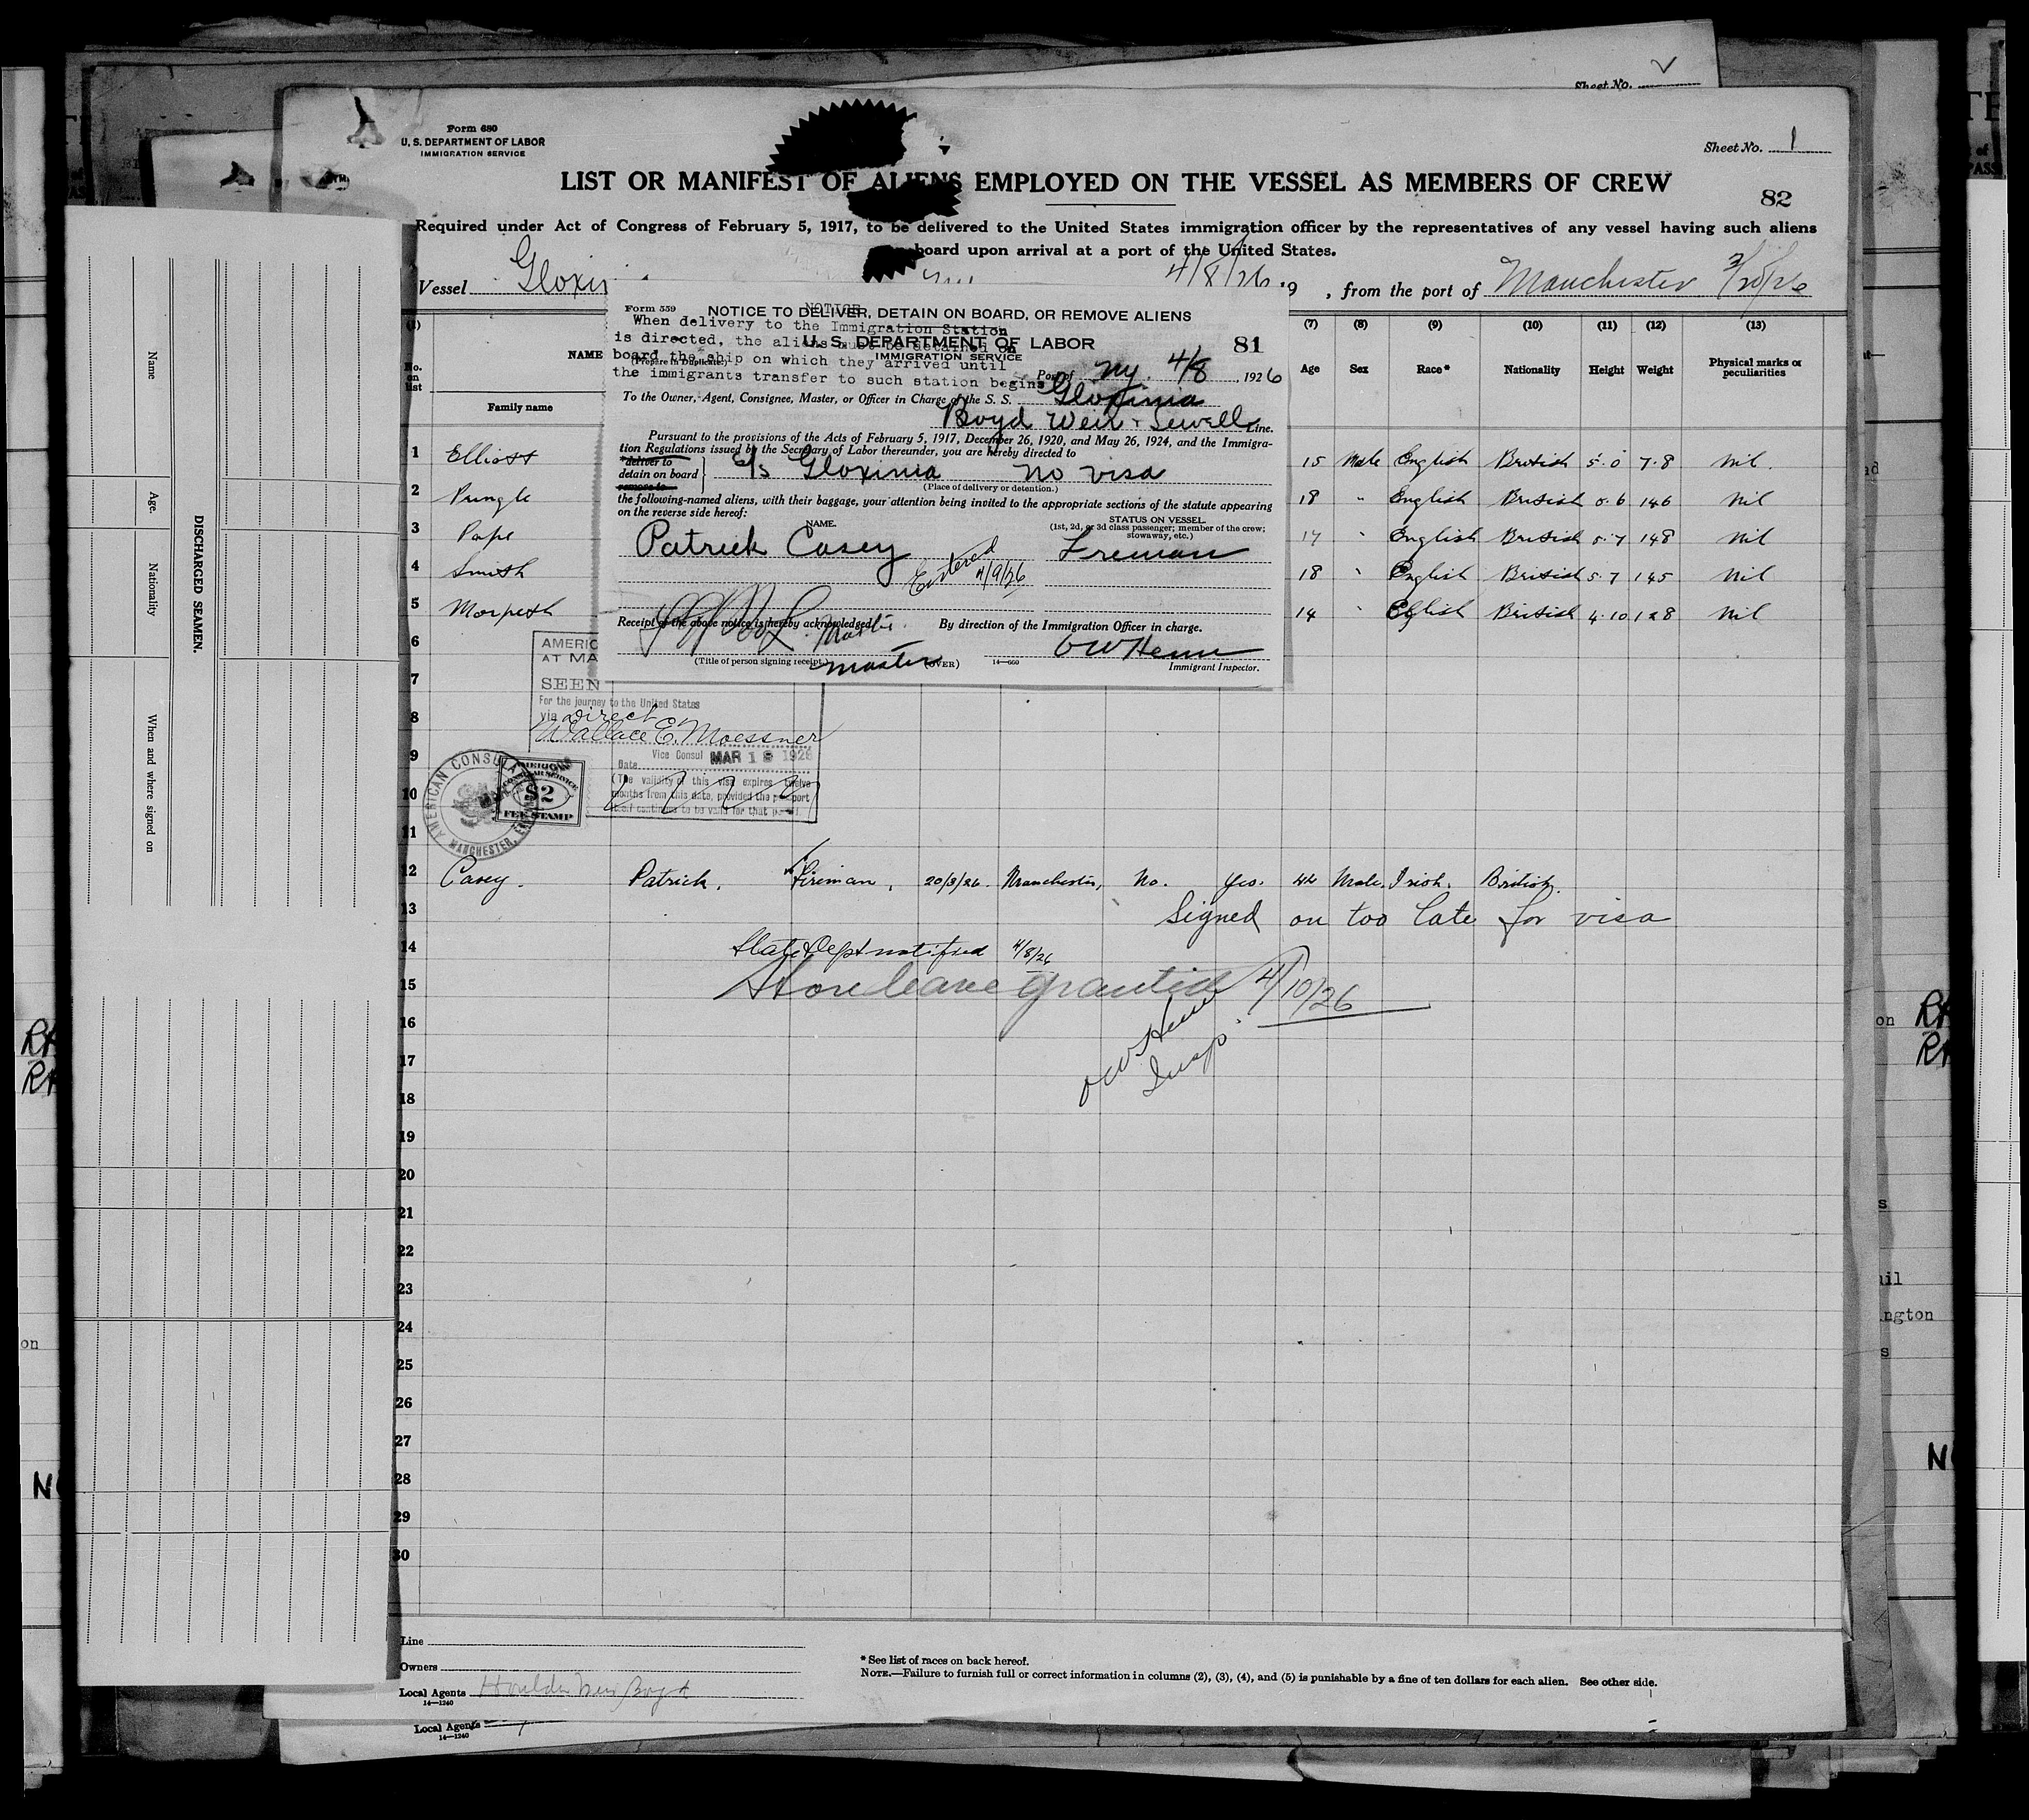 Sheet No.
Form 680
U. S. DEPARTMENT OF LABOR
IMMIGRATION SERVICE
Sheet No. 1
LIST OR MANIFEST OF ALIENS EMPLOYED ON THE VESSEL AS MEMBERS OF CREW
82
Required under Act of Congress of February 5, 1917, to be delivered to the United States immigration officer by the representatives of any vessel having such aliens
board upon arrival at a port of the United States.
Vessel Gloxin 4/8/26 19 , from the port of Manchester 3/20/26
Form 559
NOTICE
NOTICE TO DELIVER, DETAIN ON BOARD, OR REMOVE ALIENS
When delivery to the Immigration Station
is directed, the aliens must be detained on
board the ship on which they arrived until
the immigrants transfer to such station begins
U. S. DEPARTMENT OF LABOR
IMMIGRATION SERVICE
81
(Prepare in Duplicate)
Port of N.Y. 4/8, 1926
To the Owner, Agent, Consignee, Master, or Officer in Charge of the S. S. Gloxinia
Boyd Weir & Sewell Line.
Pursuant to the provisions of the Acts of February 5, 1917, December 26, 1920, and May 26, 1924, and the Immigra-
tion Regulations issued by the Secretary of Labor thereunder, you are hereby directed to
*deliver to
detain on board
remove to
S/S Gloxinia no visa
(Place of delivery or detention.)
the following-named aliens, with their baggage, your attention being invited to the appropriate sections of the statute appearing
on the reverse side hereof:
NAME.
STATUS ON VESSEL.
(1st, 2d, or 3d class passenger; member of the crew;
stowaway, etc.)
Patrick Casey Fireman
Entered
4/9/26
Receipt of the above notice is hereby acknowledged Master
By direction of the Immigration Officer in charge.
OW Henn
(Title of person signing receipt.) master (OVER) 14—660 Immigrant Inspector.
(1) (7) (8) (9) (10) (11) (12) (13)
No. on list
NAME
Family name
Age Sex Race* Nationality Height Weight Physical marks or peculiarities
1 Elliott 15 Male English British 5.0 7.8 Nil.
2 Pringle 18 " English British 5.6 146 Nil
3 Pope 17 " English British 5.7 148 Nil
4 Smith 18 " English British 5.7 145 Nil
5 Morpeth 14 " English British 4.10 128 Nil
6
7
8
9
10
11
AMERIC
AT MA
SEEN
For the journey to the United States
via direct
Wallace E. Moessner
Vice Consul MAR 19 1926
Date
(The validity of this visa expires twelve
months from this date, provided the passport
itself continues to be valid for that period.)
AMERICAN CONSULATE
MANCHESTER, ENGLAND
AMERICAN
CONSULAR SERVICE
$2
FEE STAMP
12 Casey. Patrick, Fireman, 20/3/26. Manchester, No. Yes. 44 Male. Irish. British.
13 Signed on too late for visa
14 State Dept notified 4/8/26
15 Shore leave granted 4/10/26
16 OW Henn
17 Insp.
18
19
20
21
22
23
24
25
26
27
28
29
30
Line
Owners
Local Agents Houlder Weir Boyd
14—1240
* See list of races on back hereof.
NOTE.—Failure to furnish full or correct information in columns (2), (3), (4), and (5) is punishable by a fine of ten dollars for each alien. See other side.
Local Agents
14—1240
DISCHARGED SEAMEN.
Name
Age.
Nationality
When and where signed on
on
ington